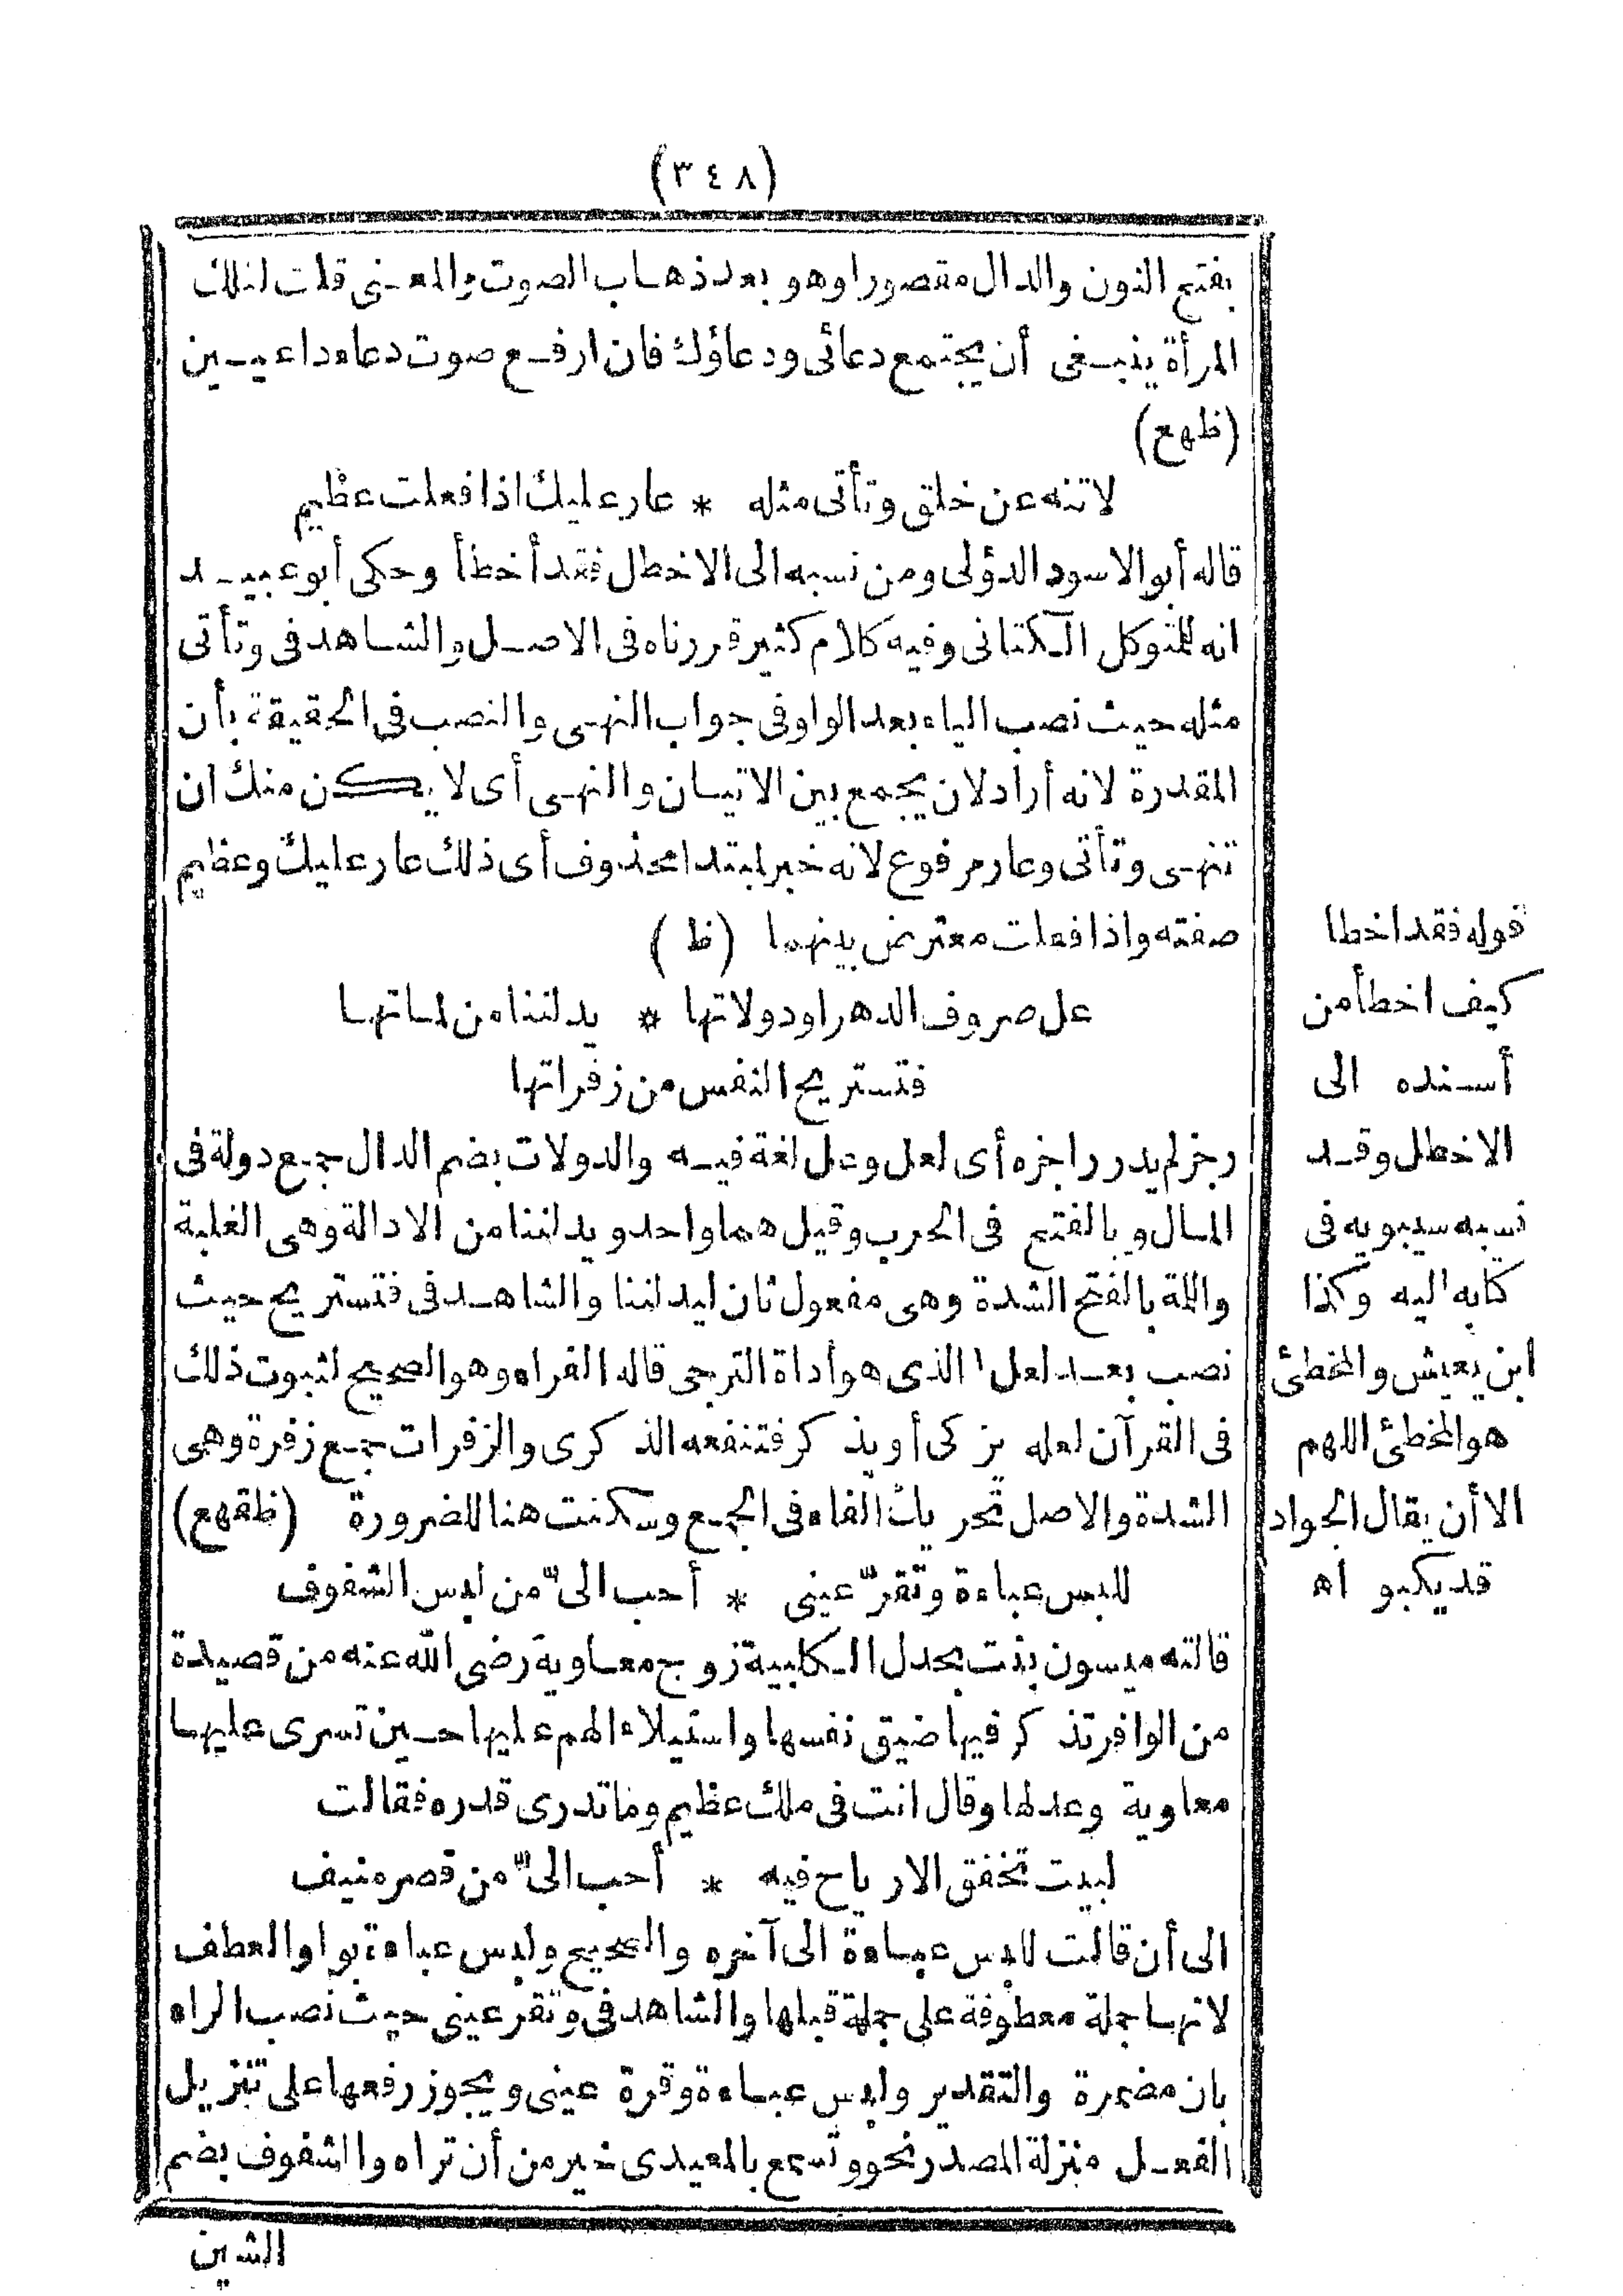 (٣٤٨)
بفتح النون والدال مقصورا وهو بعد ذهاب الصوت والمعنى قلت لتلك
المرأة ينبغى أن يجتمع دعائى ودعاؤك فان ارفع صوت دعاء داعيين
(ظهع)
لا تنه عن خلق وتأتى مثله * عار عليك اذا فعلت عظيم
قاله أبو الاسود الدؤلى ومن نسبه الى الاخطل فقد أخطأ وحكى أبو عبيد
انه للمتوكل الكتانى وفيه كلام كثير قررناه فى الاصل والشاهد فى وتأتى
مثله حيث نصب الياء بعد الواو فى جواب النهى والنصب فى الحقيقة بأن
المقدرة لانه أراد لان يجمع بين الاتيان والنهى أى لا يكن منك ان
تنهى وتأتى وعار مرفوع لانه خبر لمبتدا محذوف أى ذلك عار عليك وعظيم
صفته واذا فعلت معترض بينهما (ظ)
عل صروف الدهر او دولاتها * يدلننا من لماتها
فتستريح النفس من زفراتها
رجز لم يدر راجزه أى لعل وعل لغة فيه والدولات بضم الدال جمع دولة فى
المال وبالفتح فى الحرب وقيل هما واحد ويدلننا من الادالة وهى الغلبة
واللمة بالفتح الشدة وهى مفعول ثان ليدلننا والشاهد فى فتستريح حيث
نصب بعد لعل الذى هو أداة الترجى قاله الفراء وهو الصحيح لثبوت ذلك
فى القرآن لعله يزكى أو يذكر فتنفعه الذكرى والزفرات جمع زفرة وهى
الشدة والاصل تحريك الفاء فى الجمع وسكنت هنا للضرورة (ظقهع)
للبس عباءة وتقرّ عينى * أحب الىّ من لبس الشفوف
قالته ميسون بنت بحدل الكلبية زوج معاوية رضى الله عنه من قصيدة
من الوافر تذكر فيها ضيق نفسها واستيلاء الهم عليها حين تسرى عليها
معاوية وعدلها وقال انت فى ملك عظيم وما تدرى قدره فقالت
لبيت تخفق الارياح فيه * أحب الىّ من قصر منيف
الى أن قالت للبس عباءة الى آخره والصحيح ولبس عباءة بواو العطف
لانها جملة معطوفة على جملة قبلها والشاهد فى وتقر عينى حيث نصب الراء
بان مضمرة والتقدير ولبس عباءة وقرة عينى ويجوز رفعها على تنزيل
الفعل منزلة المصدر نحو وتسمع بالمعيدى خير من أن تراه والشفوف بضم
الشين
قوله فقد اخطا
كيف اخطأ من
أسنده الى
الاخطل وقد
نسبه سيبويه فى
كتابه اليه وكذا
ابن يعيش والمخطئ
هو المخطئ اللهم
الا أن يقال الجواد
قد يكبو اه